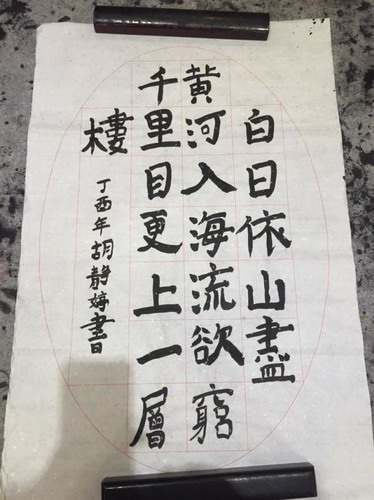 白日依山盡
黄河入海流欲窮
千里目更上一層
樓
丁酉年胡靜婷書